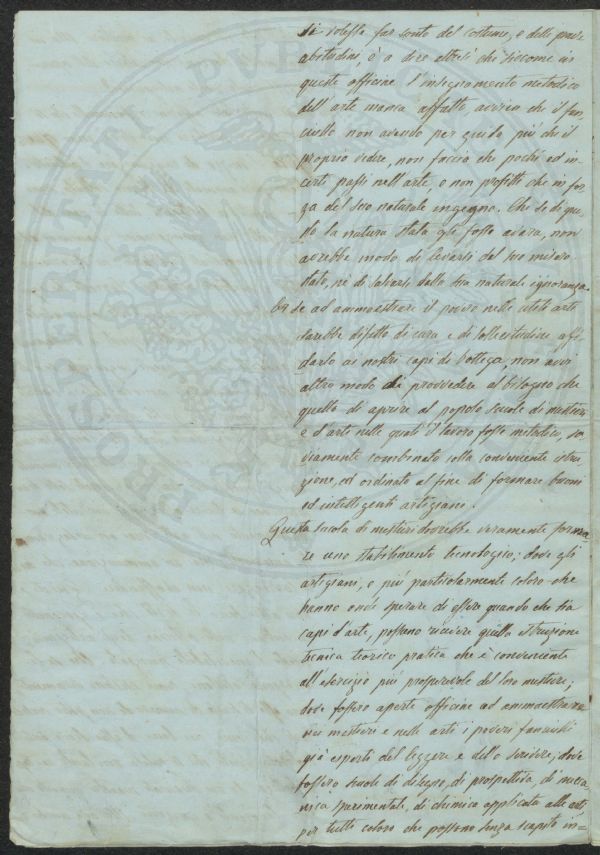 si volesse far conto del costume, e delle prave
abitudini, è a dire altresì che siccome in
queste officine l'insegnamento metodico
dell'arte manca affatto, avvien che il fan,
ciullo non avendo per guida più che il
proprio vedere, non faccia che pochi ed in,
certi passi nell'arte, e non profitti che in for,
za del suo naturale ingegno. Che se di que,
sto la natura stata gli fosse avara, non
avrebbe modo di levarsi dal suo misero
stato, nè di salvarsi dalla sua naturale ignoranza.
Or se ad ammaestrare il povero nelle utili arti
sarebbe difetto di cura e di sollecitudine affi,
darlo ai nostri capi di bottega, non avvi
altro modo di provvedere al bisogno che
quello di aprire al popolo scuole di mestieri
e d'arte nelle quali il lavoro fosse metodico, sa,
viamente combinato colla conveniente istru,
zione, ed ordinato al fine di formare buoni
ed intelligenti artigiani.
Questa scuola di mestieri dovrebbe veramente forma=
re uno stabilimento tecnologico; dove gli
artigiani, e più particolarmente coloro che
hanno onde sperare di essere quando che sia
capi d'arte, possono ricevere quella istruzione
tecnica teorico pratica che è conveniente
all'esercizio più prosperevole del loro mestiere;
dove fossero aperte officine ad ammaestrare
nei mestieri e nelle arti i poveri fanciulli
già esperti del leggere e dello scrivere; dove
fossero scuole di disegno, di prospettiva, di mecca
nica sperimentale, di chimica applicata alle arti
per tutti coloro che possono senza scapito in=
PROSPERITATI PVB